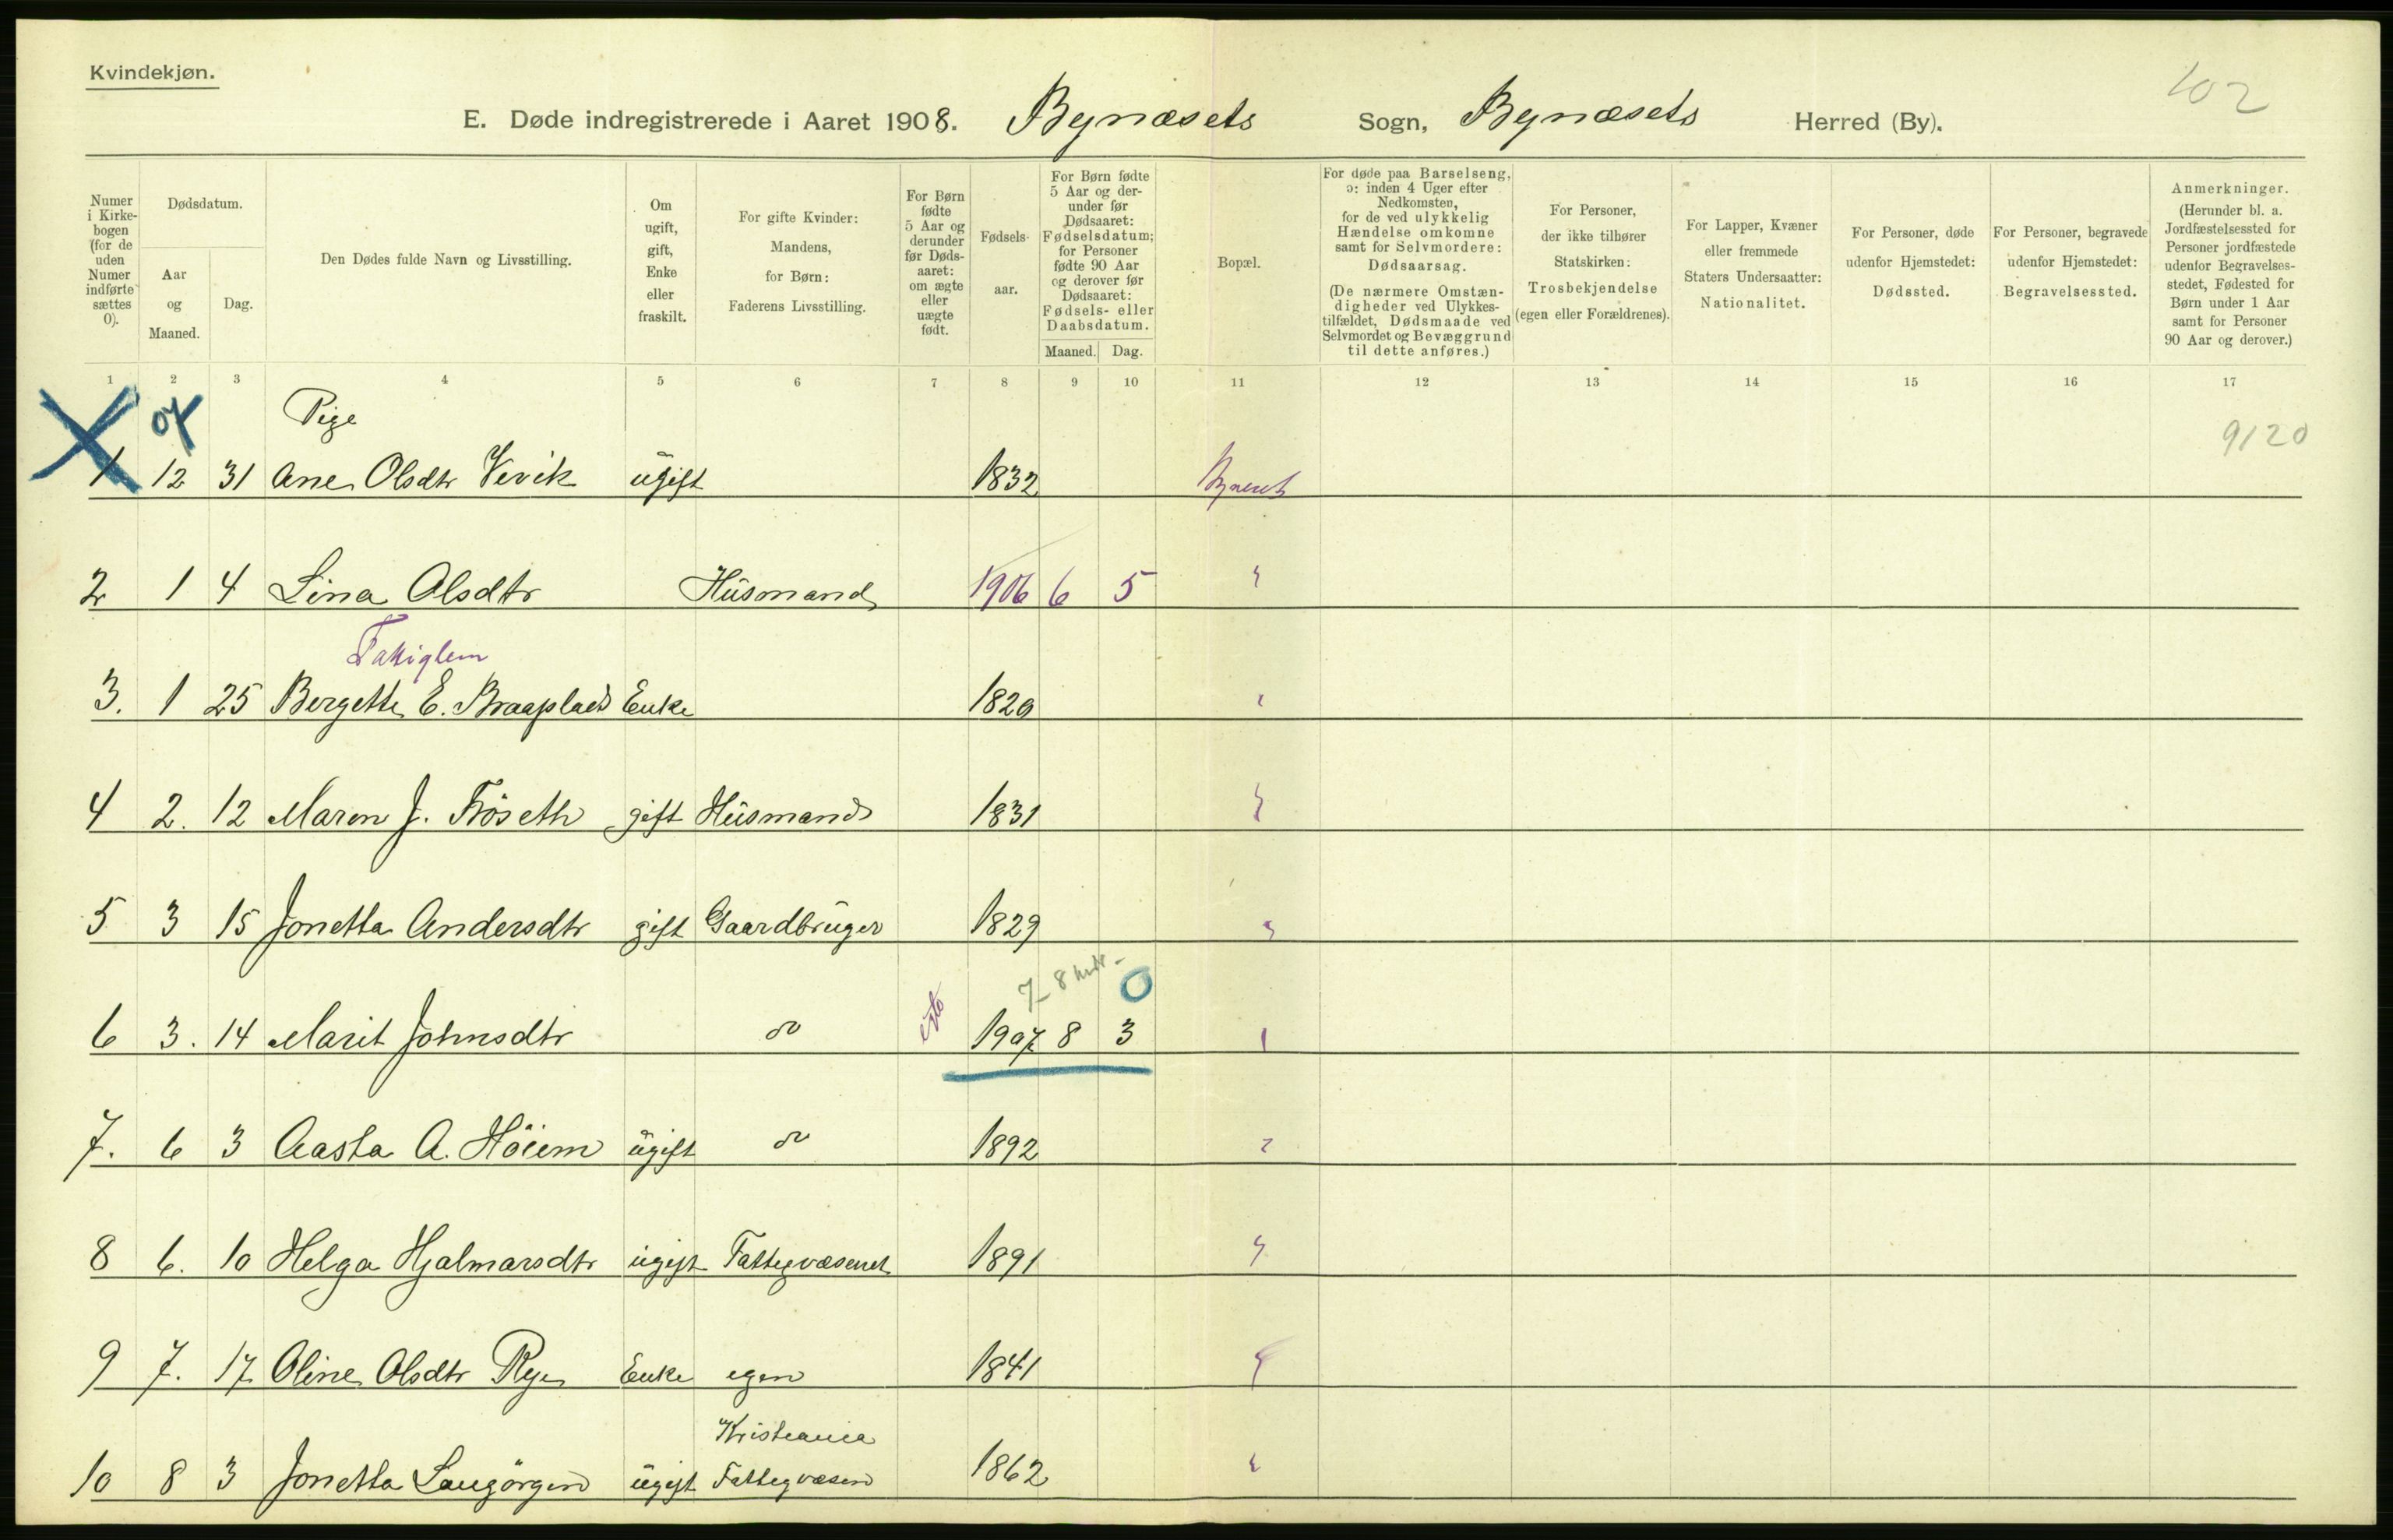 Kvindekjøn.
102
E. Døde indregistrerede i Aaret 1908. Bynæsets Sogn, Bynæsets Herred (By).
Numer i Kirkebogen (for de uden Numer indførte sættes 0).
Dødsdatum.
Aar og Maaned.
Dag.
Den Dødes fulde Navn og Livsstilling.
Om ugift, gift, Enke eller fraskilt.
For gifte Kvinder: Mandens, for Børn: Faderens Livsstilling.
For Børn fødte 5 Aar og derunder før Dødsaaret: om ægte eller uægte født.
Fødselsaar.
For Børn fødte 5 Aar og derunder før Dødsaaret: Fødselsdatum; for Personer fødte 90 Aar og derover før Dødsaaret: Fødsels- eller Daabsdatum.
Maaned. Dag.
Bopæl.
For døde paa Barselseng, ɔ: inden 4 Uger efter Nedkomsten, for de ved ulykkelig Hændelse omkomne samt for Selvmordere: Dødsaarsag. (De nærmere Omstændigheder ved Ulykkestilfældet, Dødsmaade ved Selvmordet og Bevæggrund til dette anføres.)
For Personer, der ikke tilhører Statskirken: Trosbekjendelse (egen eller Forældrenes).
For Lapper, Kvæner eller fremmede Staters Undersaatter: Nationalitet.
For Personer, døde udenfor Hjemstedet: Dødssted.
For Personer, begravede udenfor Hjemstedet: Begravelsessted.
Anmerkninger. (Herunder bl. a. Jordfæstelsessted for Personer jordfæstede udenfor Begravelsesstedet, Fødested for Børn under 1 Aar samt for Personer 90 Aar og derover.)
1 2 3 4 5 6 7 8 9 10 11 12 13 14 15 16 17
07 Pige 9120
1 12 31 Ane Olsdtr Vevik ugift 1832 Bynæset
2 1 4 Lina Olsdtr Husmand 1906 6 5 "
3. 1 25 Bergette E. Braaplads Enke 1829 "
4 2. 12 Maren J. Fröseth gift Husmand 1831 "
5 3 15 Jonetta Andersdtr gift Gaardbruger 1829 "
7 8 mdr - 0
6 3. 14 Marit Johnsdtr do 1907 8 3 "
7. 6 3 Aasta A. Höiem ugift do 1892 "
8 6. 10 Helga Hjalmarsdtr ugift Fattigvæsenet 1891 "
9 7. 17 Oline Olsdtr Rye Enke egen 1841 "
Kristiania
10 8 3 Jonetta Langörgen ugift Fattigvæsen 1862 "